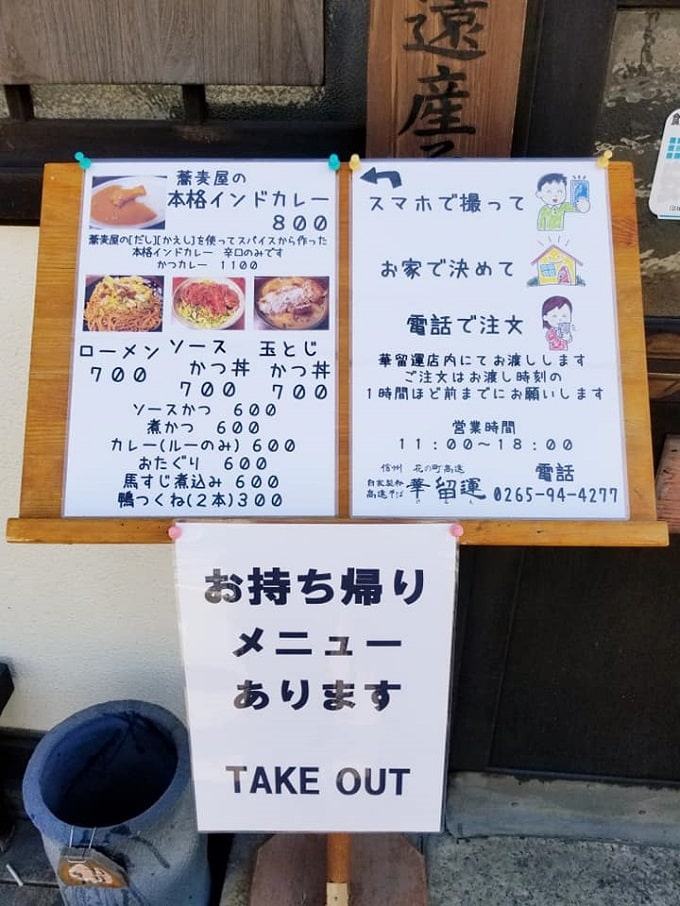 遠産
蕎麦屋の
本格インドカレー
800
蕎麦屋の[だし][かえし]を使ってスパイスから作った
本格インドカレー 辛口のみです
かつカレー 1100
ローメン
700
ソース
かつ丼
700
玉とじ
かつ丼
700
ソースかつ 600
煮かつ 600
カレー(ルーのみ) 600
おたぐり 600
馬すじ煮込み 600
鴨つくね(2本)300
スマホで撮って
お家で決めて
電話で注文
華留運店内にてお渡しします
ご注文はお渡し時刻の
1時間ほど前までにお願いします
営業時間
11:00〜18:00
信州 花の町高遠
自家製粉
高遠そば
華留運
電話
0265-94-4277
お持ち帰り
メニュー
あります
TAKE OUT